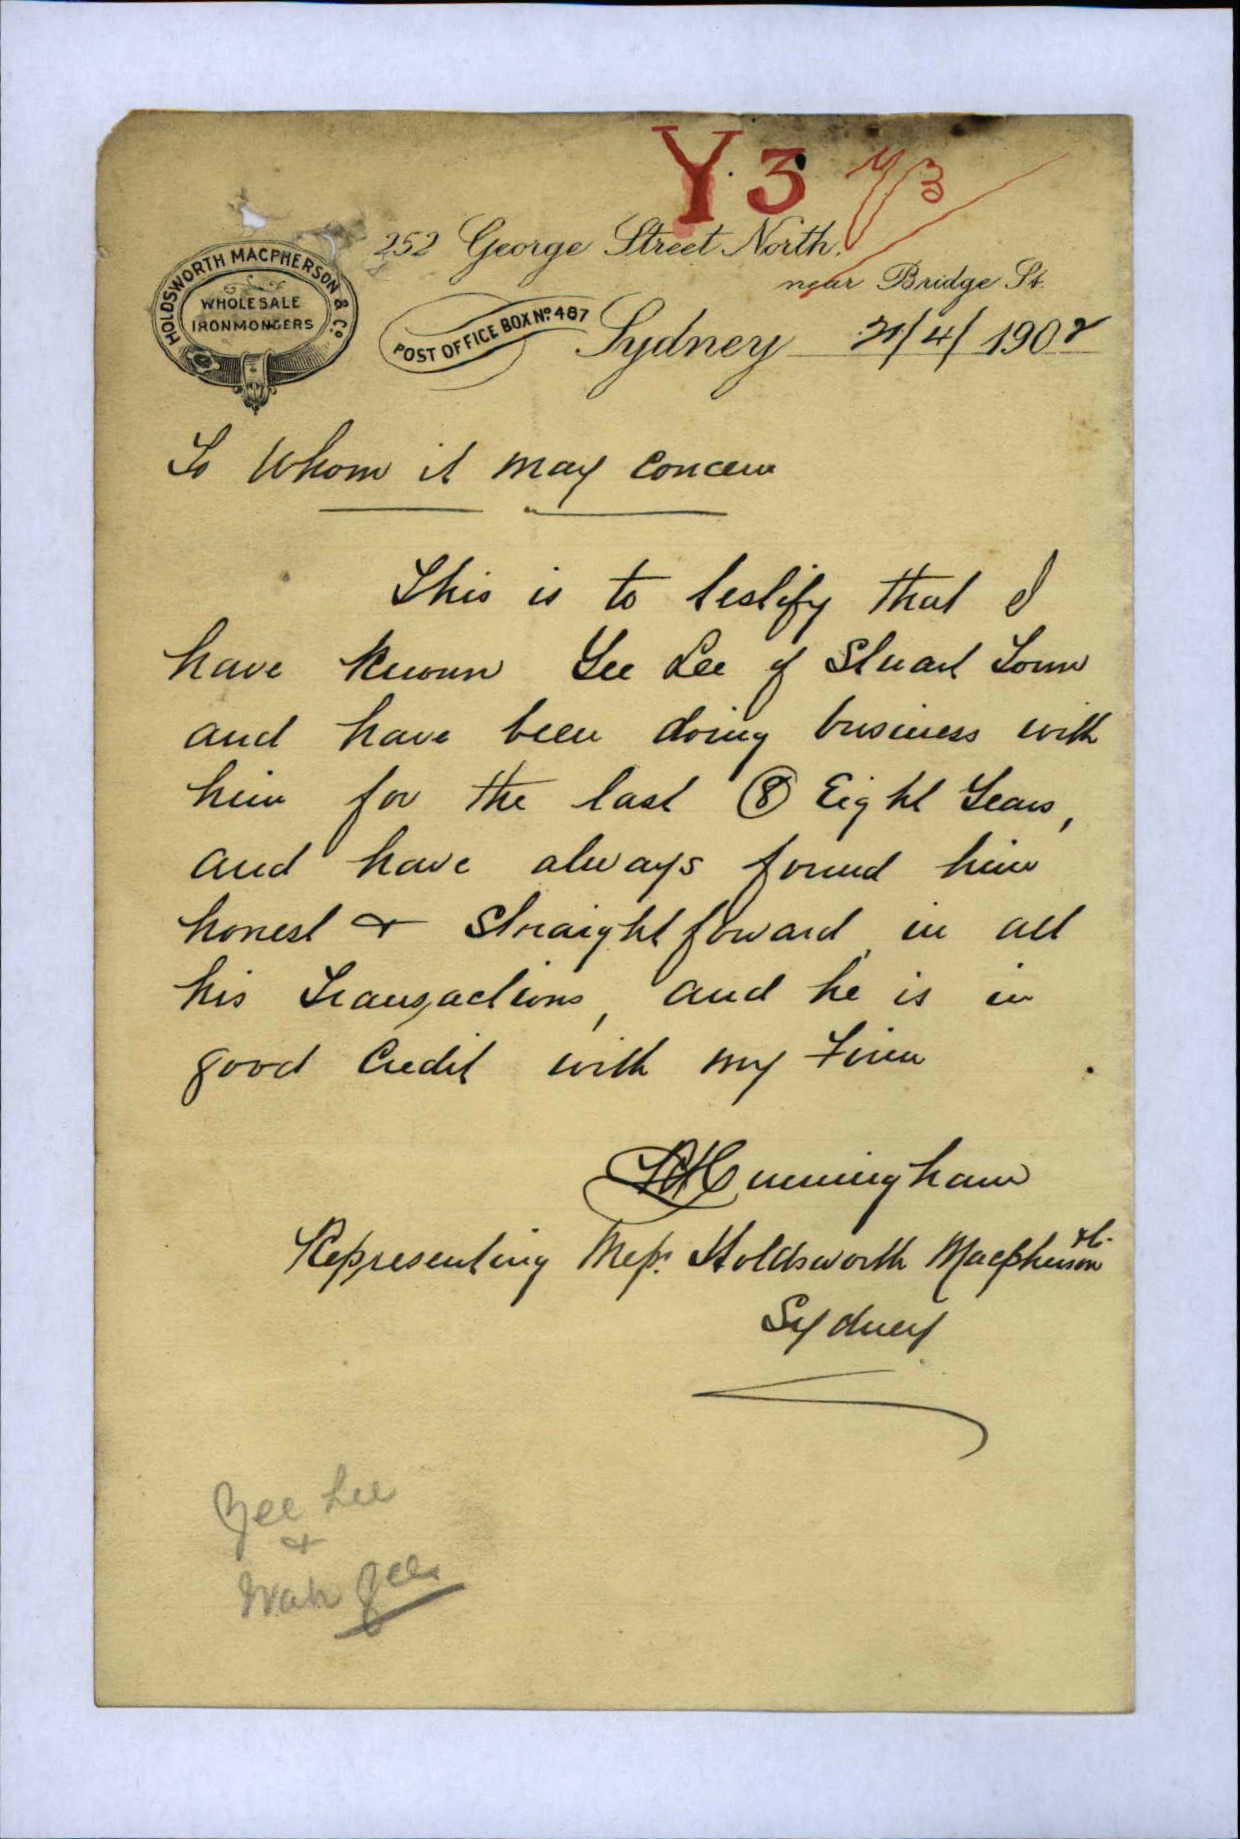 Y. 3 Y/3
252 George Street North.
near Bridge St.
HOLDSWORTH MACPHERSON & Co.
WHOLESALE
IRONMONGERS
POST OFFICE BOX No. 487
Sydney 21/4/1902
To Whom it may concern
This is to testify that I
have known Yee Lee of Stuart Town
and have been doing business with
him for the last (8) Eight Years,
and have always found him
honest & straight foward in all
his Transactions, and he is in
good Credit with my Firm
Cunningham
Representing Messrs Holdsworth Macpherson & Co.
Sydney
Yee Lee
&
Wah Yee